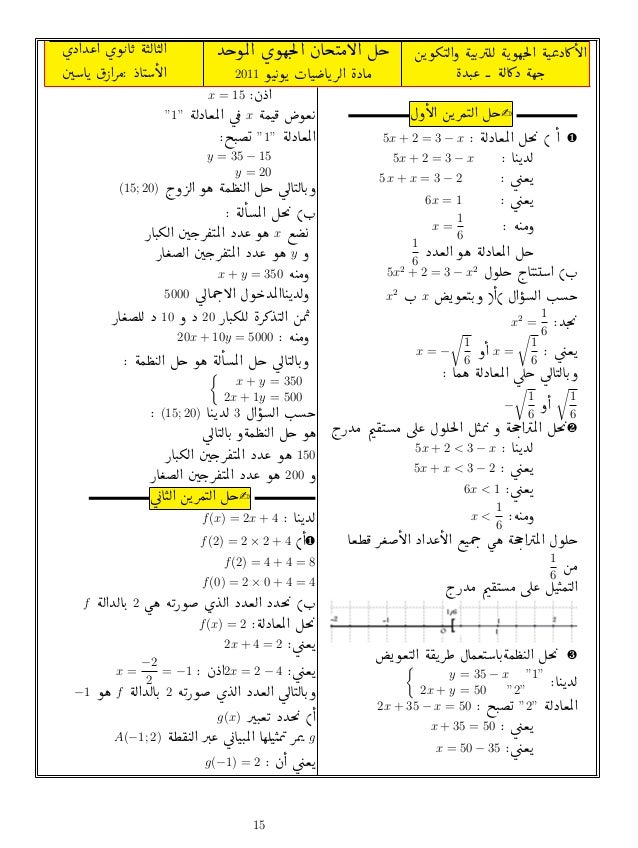 الأكاديمية الجهوية للتربية والتكوين
جهة دكالة ـ عبدة
حل الامتحان الجهوي الموحد
مادة الرياضيات يونيو 2011
الثالثة ثانوي اعدادي
الأستاذ :مرازق ياسين
✍حل التمرين الأول
❶ أ ) نحل المعادلة : 5x + 2 = 3 − x
لدينا : 5x + 2 = 3 − x
يعني : 5x + x = 3 − 2
يعني : 6x = 1
ومنه : x = 1/6
حل المعادلة هو العدد 1/6
ب) استنتاج حلول 5x² + 2 = 3 − x²
حسب السؤال أ) وبتعويض x ب x²
نجد: x² = 1/6
يعني : x = √(1/6) أو x = −√(1/6)
وبالتالي حلي المعادلة هما :
√(1/6) أو −√(1/6)
❷نحل المتراجحة و نمثل الحلول على مستقيم مدرج
لدينا : 5x + 2 < 3 − x
يعني : 5x + x < 3 − 2
يعني: 6x < 1
ومنه: x < 1/6
حلول المتراجحة هي جميع الأعداد الأصغر قطعا
من 1/6
التمثيل على مستقيم مدرج
-2 -1 0 1/6 1 2
❸ نحل النظمةباستعمال طريقة التعويض
لدينا: { y = 35 − x "1"
2x + y = 50 "2"
المعادلة "2" تصبح : 2x + 35 − x = 50
يعني : x + 35 = 50
يعني: x = 50 − 35
اذن: x = 15
نعوض قيمة x في المعادلة "1"
المعادلة "1" تصبح:
y = 35 − 15
y = 20
وبالتالي حل النظمة هو الزوج (15; 20)
ب) نحل المسألة :
نضع x هو عدد المتفرجين الكبار
و y هو عدد المتفرجين الصغار
ومنه x + y = 350
ولديناالمدخول الاجمالي 5000
ثمن التذكرة للكبار 20 د و 10 د للصغار
ومنه : 20x + 10y = 5000
وبالتالي حل المسألة هو حل النظمة :
{ x + y = 350
2x + 1y = 500
حسب السؤال 3 لدينا (15; 20) :
هو حل النظمةو بالتالي
150 هو عدد المتفرجين الكبار
و 200 هو عدد المتفرجين الصغار
✍حل التمرين الثاني
لدينا : f(x) = 2x + 4
❶أ) f(2) = 2 × 2 + 4
f(2) = 4 + 4 = 8
f(0) = 2 × 0 + 4 = 4
ب) نحدد العدد الذي صورته هي 2 بالدالة f
نحل المعادلة: f(x) = 2
يعني: 2x + 4 = 2
يعني: 2x = 2 − 4اذن : x = −2/2 = −1
وبالتالي العدد الذي صورته 2 بالدالة f هو −1
أ) نحدد تعبير g(x)
g يمر تمثيلها المبياني عبر النقطة A(−1; 2)
يعني أن : g(−1) = 2
15